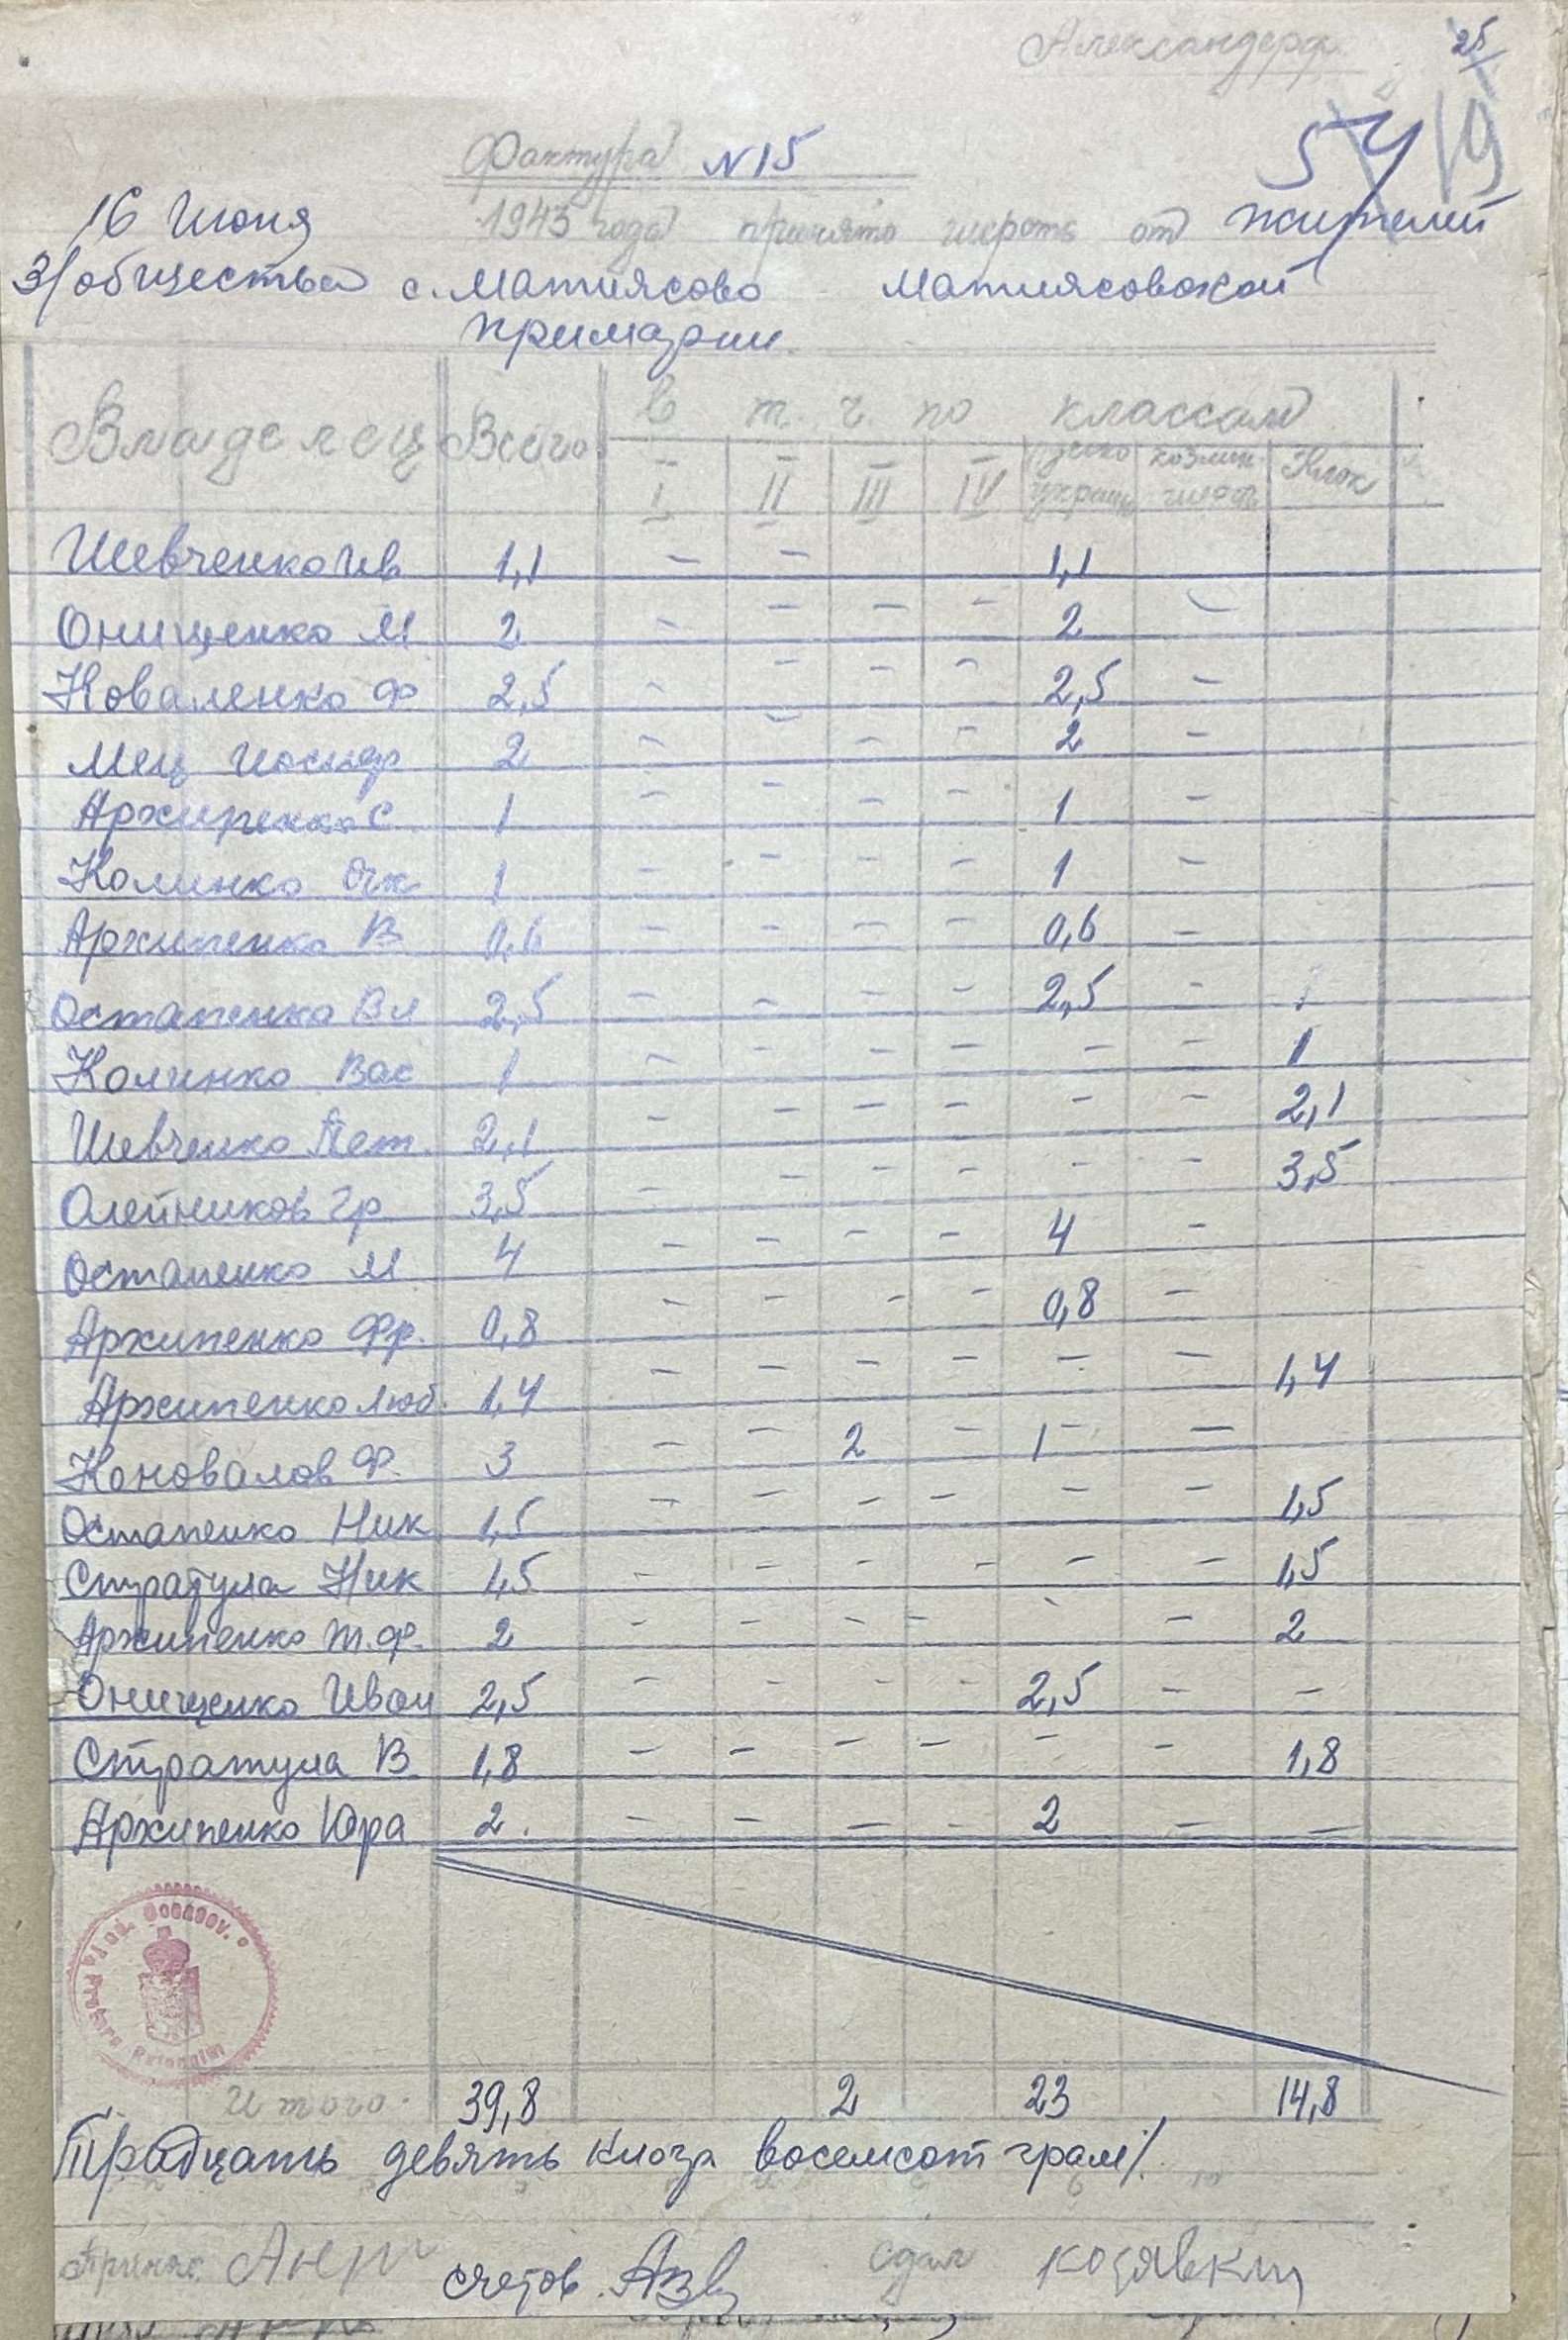 Александерф.
25
54 19
Фактура N 15
16 Июня 1943 года принято шерсть от жителей
З/общества с. Матиясово Матиясовской
примарии
Владелец Всего в т. ч. по классам
I II III IV цико украин. козлин. шерсть Клок
Шевченко Ив 1,1 – – 1,1
Онищенко М 2 – – – – 2 –
Коваленко Ф 2,5 – – – – 2,5 –
Мец Иосиф 2 – – – – 2 –
Архипенко С 1 – – – – 1 –
Колинко 1 – – – – 1 –
Архипенко В 0,6 – – – – 0,6 –
Остапенко Вл 2,5 – – – – 2,5 –
Колинко Вас 1 – – – – – – 1
Шевченко Пет. 2,1 – – – – – – 2,1
Олейников Гр 3,5 – – – – – – 3,5
Остапенко М 4 – – – – 4 –
Архипенко Фр. 0,8 – – – – 0,8 –
Архипенко Люб. 1,4 – – – – – – 1,4
Коновалов Ф. 3 – – 2 – 1 –
Остапенко Ник 1,5 – – – – – – 1,5
Стратула Ник 1,5 – – – – – – 1,5
Архипенко Т.Ф. 2 – – – – – – 2
Онищенко Иван 2,5 – – – – 2,5 – –
Стратула В 1,8 – – – – – – 1,8
Архипенко Юра 2. – – – – 2 – –
Итого. 39,8 2 23 14,8
Традцать девять клога восемсот грам/.
Принял счетов. Сдал